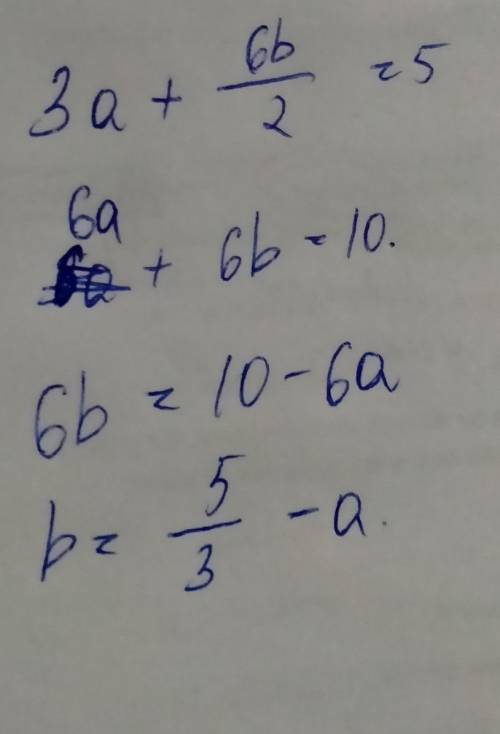 3a + 6b/2 = 5
6a + 6b = 10.
6b = 10 - 6a
b = 5/3 - a.